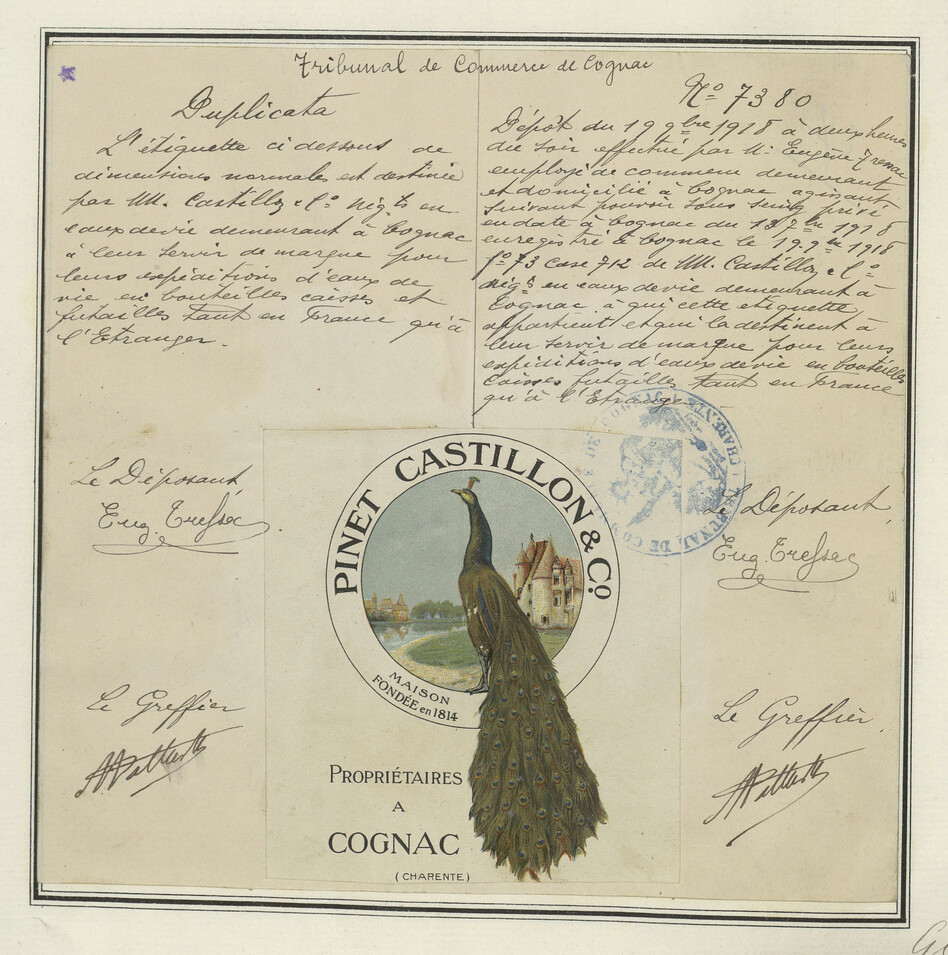 Tribunal de Commerce de Cognac
Duplicata
L'étiquette ci dessous de
dimensions normales est destinée
par MM. Castillon & Cº Négts en
eaux de vie demeurant à Cognac
à leur servir de marque pour
leurs expéditions d'eaux de
vie en bouteilles caisses et
futailles tant en France qu'à
l'Etranger.
Nº 7380
Dépôt du 19 9bre 1918 à deux heures
du soir effectué par M. Eugène
employé de commerce demeurant
et domicilié à Cognac agissant
suivant pouvoir sous seing privé
en date à Cognac du 1918
enregistré à Cognac le 19 9bre 1918
fº 73 case 712 de MM. Castillon & Cº
Négts en eaux de vie demeurant à
Cognac à qui cette etiquette
appartient et qui la destinent à
leur servir de marque pour leurs
expéditions d'eaux de vie en bouteilles
Caisses futailles tant en France
qu'à l'Etranger
Le Déposant
Le Déposant
Le Greffier
Le Greffier
TRIBUNAL DE CO CHARENTE
PINET CASTILLON & Cº
MAISON
FONDÉE en 1814
PROPRIÉTAIRES
A
COGNAC
(CHARENTE)